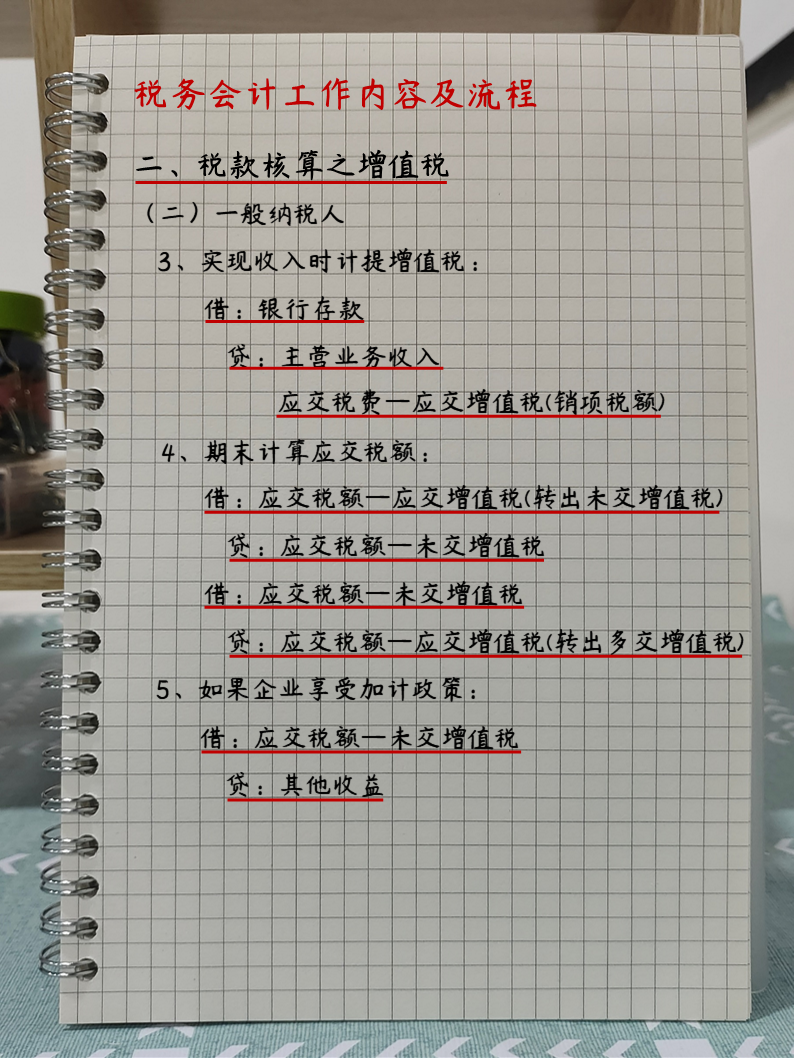 税务会计工作内容及流程
二、税款核算之增值税
（二）一般纳税人
3、实现收入时计提增值税：
借：银行存款
贷：主营业务收入
应交税费—应交增值税(销项税额)
4、期末计算应交税额：
借：应交税额—应交增值税(转出未交增值税)
贷：应交税额—未交增值税
借：应交税额—未交增值税
贷：应交税额—应交增值税(转出多交增值税)
5、如果企业享受加计政策：
借：应交税额—未交增值税
贷：其他收益